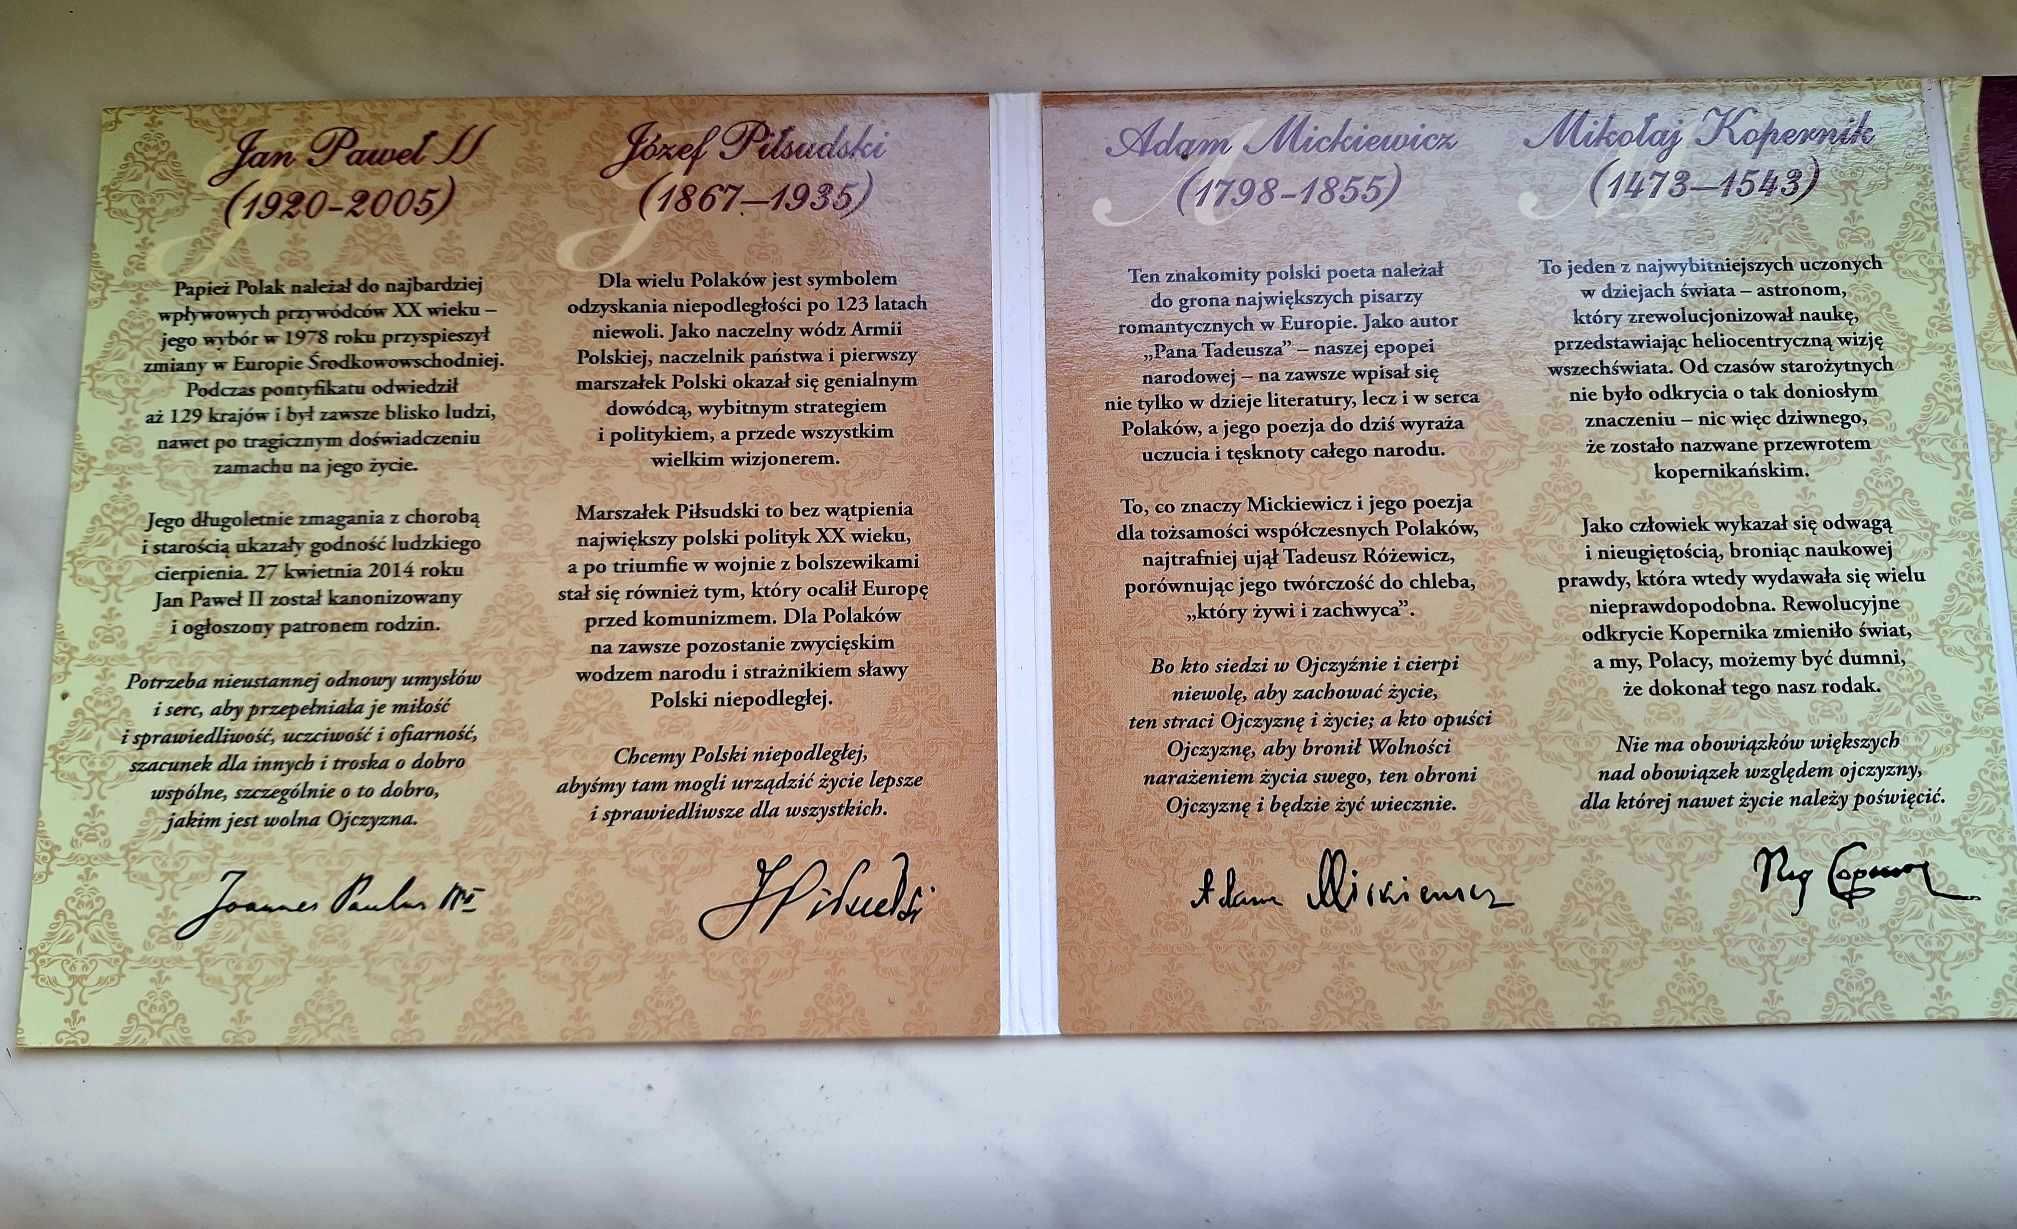 Jan Paweł II
(1920-2005)
Papież Polak należał do najbardziej
wpływowych przywódców XX wieku –
jego wybór w 1978 roku przyspieszył
zmiany w Europie Środkowowschodniej.
Podczas pontyfikatu odwiedził
aż 129 krajów i był zawsze blisko ludzi,
nawet po tragicznym doświadczeniu
zamachu na jego życie.
Jego długoletnie zmagania z chorobą
i starością ukazały godność ludzkiego
cierpienia. 27 kwietnia 2014 roku
Jan Paweł II został kanonizowany
i ogłoszony patronem rodzin.
Potrzeba nieustannej odnowy umysłów
i serc, aby przepełniała je miłość
i sprawiedliwość, uczciwość i ofiarność,
szacunek dla innych i troska o dobro
wspólne, szczególnie o to dobro,
jakim jest wolna Ojczyzna.
Joannes Paulus II
Józef Piłsudski
(1867–1935)
Dla wielu Polaków jest symbolem
odzyskania niepodległości po 123 latach
niewoli. Jako naczelny wódz Armii
Polskiej, naczelnik państwa i pierwszy
marszałek Polski okazał się genialnym
dowódcą, wybitnym strategiem
i politykiem, a przede wszystkim
wielkim wizjonerem.
Marszałek Piłsudski to bez wątpienia
największy polski polityk XX wieku,
a po triumfie w wojnie z bolszewikami
stał się również tym, który ocalił Europę
przed komunizmem. Dla Polaków
na zawsze pozostanie zwycięskim
wodzem narodu i strażnikiem sławy
Polski niepodległej.
Chcemy Polski niepodległej,
abyśmy tam mogli urządzić życie lepsze
i sprawiedliwsze dla wszystkich.
J Piłsudski
Adam Mickiewicz
(1798-1855)
Ten znakomity polski poeta należał
do grona największych pisarzy
romantycznych w Europie. Jako autor
„Pana Tadeusza” – naszej epopei
narodowej – na zawsze wpisał się
nie tylko w dzieje literatury, lecz i w serca
Polaków, a jego poezja do dziś wyraża
uczucia i tęsknoty całego narodu.
To, co znaczy Mickiewicz i jego poezja
dla tożsamości współczesnych Polaków,
najtrafniej ujął Tadeusz Różewicz,
porównując jego twórczość do chleba,
„który żywi i zachwyca”.
Bo kto siedzi w Ojczyźnie i cierpi
niewolę, aby zachować życie,
ten straci Ojczyznę i życie; a kto opuści
Ojczyznę, aby bronił Wolności
narażeniem życia swego, ten obroni
Ojczyznę i będzie żyć wiecznie.
Adam Mickiewicz
Mikołaj Kopernik
(1473–1543)
To jeden z najwybitniejszych uczonych
w dziejach świata – astronom,
który zrewolucjonizował naukę,
przedstawiając heliocentryczną wizję
wszechświata. Od czasów starożytnych
nie było odkrycia o tak doniosłym
znaczeniu – nic więc dziwnego,
że zostało nazwane przewrotem
kopernikańskim.
Jako człowiek wykazał się odwagą
i nieugiętością, broniąc naukowej
prawdy, która wtedy wydawała się wielu
nieprawdopodobna. Rewolucyjne
odkrycie Kopernika zmieniło świat,
a my, Polacy, możemy być dumni,
że dokonał tego nasz rodak.
Nie ma obowiązków większych
nad obowiązek względem ojczyzny,
dla której nawet życie należy poświęcić.